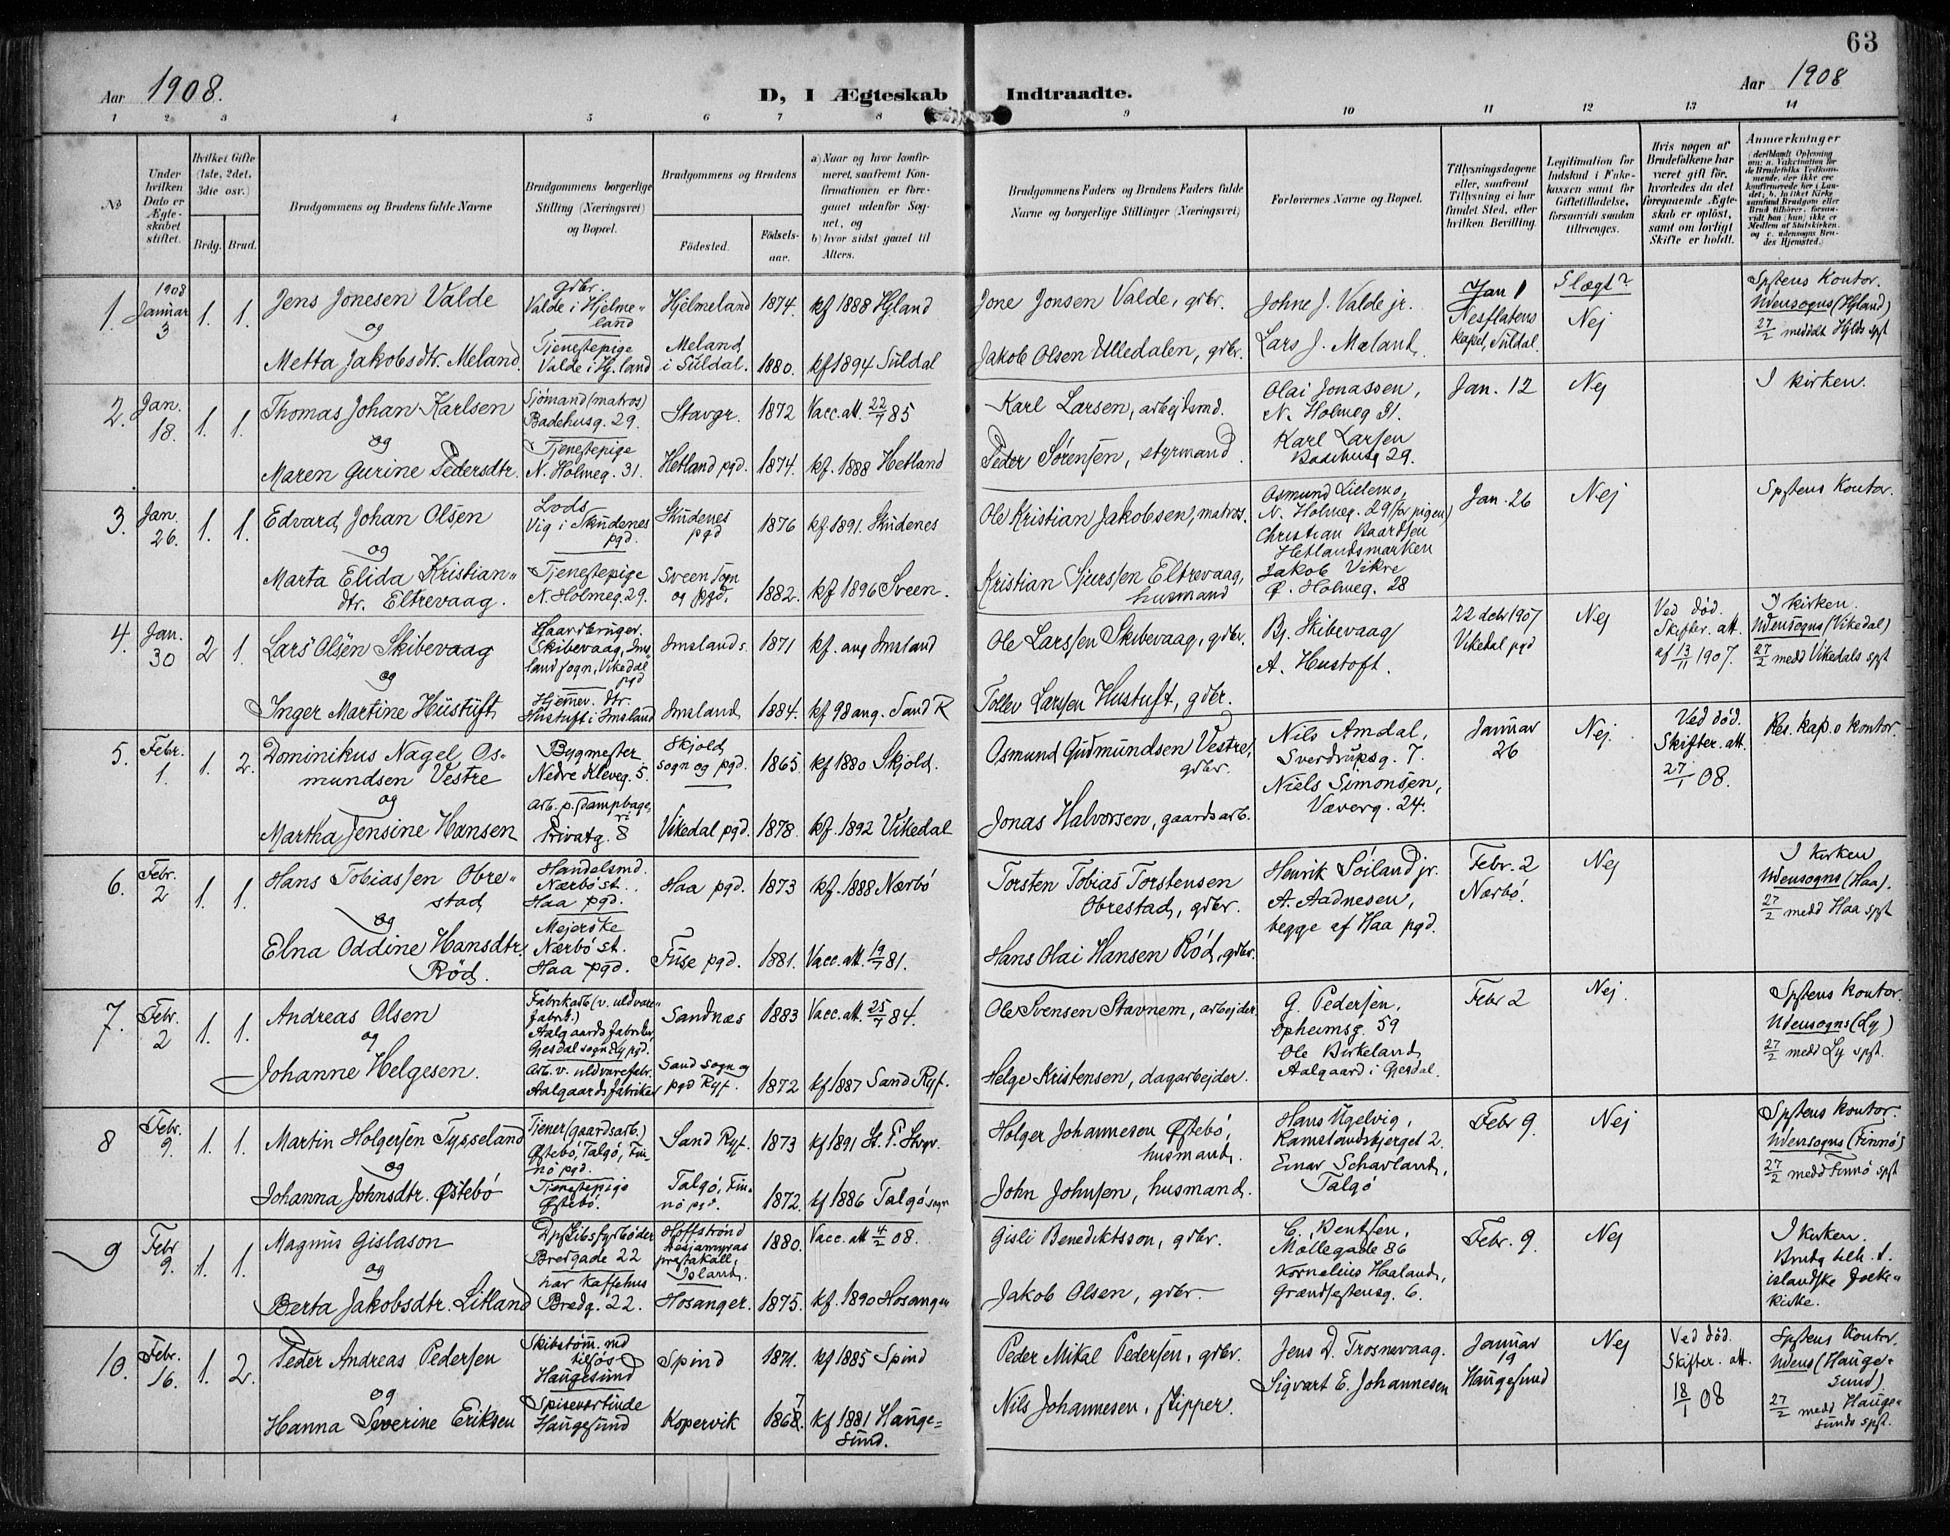 63
Aar 1908.
D, I Ægteskab Indtraadte.
Aar 1908
1 2 3 4 5 6 7 8 9 10 11 12 13 14
No
Under hvilken Dato er Ægteskabet stiftet.
Hvilket Gifte (1ste, 2det, 3die osr.)
Brdg. Brud.
Brudgommens og Brudens fulde Navne
Brudgommens borgerlige Stilling (Næringsvei) og Bopæl.
Brudgommens og Brudens
Fødested. Fødselsaar.
a) Naar og hvor konfirmeret, saafremt Konfirmationen er foregaaet udenfor Sognet, og
b) hvor sidst gaaet til Alters.
Brudgommens Faders og Brudens Faders fulde Navne og borgerlige Stillinger (Næringsvei)
Forlovernes Navne og Bopæl.
Tillysningsdagene eller, saafremt Tillysning ei har fundet Sted, efter hvilken Bevilling.
Legitimation for Indskud i Enkekassen samt for Giftetilladelse, forsaavidt saadan tiltrænges.
Hvis nogen af Brudefolkene har været gift før, hvorledes da det foregaaende Ægteskab er opløst, samt om lovligt Skifte er holdt.
Anmærkninger
1. 1908 Januar 3 1. 1.
Jens Jonesen Valde
og
Metta Jakobsdtr. Meland.
gdbr.
Valde i Hjelmeland
Tjenestepige
Valde i Hj.land
Hjelmeland 1874. kf 1888 Hjland
Meland i Suldal. 1880. kf 1894 Suldal
Jone Jonsen Valde, gdbr.
Jakob Olsen Ulledalen, gdbr.
Johne J. Valde jr.
Lars J. Mæland.
Jan 1
Nesflatens kapel, Suldal.
Slægt?
Nej
Spstens kontor.
Udensogns (Hjland)
27/2 meddelt Hjlds spst
2. Jan. 18. 1. 1.
Thomas Johan Karlsen
og
Maren Gurine Pedersdtr.
Sjømand (matros)
Badehusg. 29.
Tjenestepige
N. Holmeg. 31.
Stavgr. 1872 Vacc. att. 22/7 85
Hetland pgd. 1874. kf. 1888 Hetland
Karl Larsen, arbejdsmd.
Peder Sørensen, styrmand
Olai Jonassen,
N. Holmeg 31.
Karl Larsen
Badehusg 29.
Jan. 12 Nej
I kirken.
3. Jan. 26. 1. 1.
Edvard Johan Olsen
og
Marta Elida Kristiandtr. Eltrevaag.
Lods
Vig i Skudenes pgd.
Tjenestepige
N. Holmeg. 29.
Skudenes pgd 1876 kf 1891. Skudenes
Sveen sogn og pgd. 1882. kf 1896 Sveen.
Ole Kristian Jakobsen, matros.
Kristian Sjursen Eltrevaag, husmand
Osmund Lillemo,
N. Holmeg. 29 (for pigen)
Christian Baardsen
Hetlandsmarken
Jakob Vikre
Ø. Holmeg. 28
Jan. 26 Nej
Spstens kontor.
4. Jan. 30 2 1.
Lars Olsen Skibevaag
og
Inger Martine Hustuft
Gaardbruger.
Skibevaag, Imsland sogn, Vikedal pgd
Hjemmev. dtr.
Hustuft i Imsland
Imsland s. 1871 kf. ang Imsland
Imsland 1884. kf 98 ang. Sand R
Ole Larssen Skibevaag, gdbr.
Tollev Larssen Hustuft, gdbr.
Bj. Skibevaag
A. Hustoft.
22 debr 1907
Vikedal pgd
Nej
Ved død.
Skifter. att.
af 13/11 1907.
I kirken.
Udensogns (Vikedal)
27/2 medd Vikedals spst
5. Febr. 1. 1. 2.
Dominikus Nagel Osmundsen Vestre
og
Martha Jensine Hansen
Bygmester
Nedre Kleveg. 5.
Arb. p. dampbageri
Privatg. 8
Skjold sogn og pgd. 1865. kf 1880 Skjold.
Vikedal pgd. 1878. kf. 1892 Vikedal
Osmund Gudmundsen Vestre, gdbr.
Jonas Halvorsen, gaardsarb.
Nils Amdal,
Sverdrupsg. 7.
Niels Simonsen,
Væverg. 24.
Januar 26 Nej.
Ved død.
Skifter. att.
27/1 08.
Res. kap.s kontor.
6. Febr. 2 1. 1.
Hans Tobiassen Obrestad
og
Elna Oddine Hansdtr. Rød.
Handelsmd.
Nærbø st.
Haa pgd.
Mejerske
Nærbø st.
Haa pgd.
Haa pgd. 1873 kf. 1888 Nærbø
Fuse pgd. 1881. Vacc. att. 19/7 81.
Torsten Tobias Torstensen Obrestad, gdbr.
Hans Olai Hansen Rød, gdbr.
Henrik Søiland jr.
A. Aadnesen,
begge af Haa pgd.
Febr. 2
Nærbø.
Nej
I kirken
Udensogns (Haa).
27/2 medd Haa spst
7. Febr. 2 1. 1.
Andreas Olsen
og
Johanne Helgesen.
Fabrikarb (v. uldvarefabrik.)
Aalgaards fabriker,
Gjesdal sogn Ly pgd.
Arb. v. uldvarefabr.
Aalgaards fabriker
Sandnæs 1883 Vacc. att. 25/7 84.
Sand sogn og pgd Ryf. 1872 kf 1887 Sand Ryf.
Ole Svensen Stavnem, arbejder.
Helge Kristensen, dagarbejder.
G. Pedersen,
Opheimsg. 59
Ole Birkeland,
Aalgaard i Gjesdal.
Febr 2 Nej.
Spstens kontor.
Udensogns (Ly)
27/2 medd Ly spst.
8 Febr. 9. 1. 1.
Martin Holgersen Tysseland
og
Johanna Johnsdtr. Østebø
Tjener (gaardsarb.)
Østebø, Talgø, Finnø pgd.
Tjenestepige
Østebø.
Sand Ryf. 1873 kf 1891 St. P. Stvgr.
Talgø, Finnø pgd. 1872. kf 1886 Talgø sogn
Holger Johannesen Østebø, husmand.
John Johnsen, husmand.
Hans Ugelvig,
Ramslandsbjerget 2.
Einar Schavland,
Talgø
Febr 9. Nej
Spstens kontor.
Udensogns (Finnø)
27/2 medd Finnø spst
9 Febr 9. 1. 1.
Magnus Gislason
og
Berta Jakobsdtr. Litland
Dpskibsfyrbøder
Bredgade 22
har kaffehus
Bredg. 22.
Island. 1880. Vacc. att 4/2 08.
Hosanger. 1875. kf. 1890 Hosanger
Gisli Benediktsson, gdbr.
Jakob Olsen, gdbr.
C. Bentsen,
Møllegade 86
Kornelius Haaland,
6.
Febr. 9. Nej
I kirken.
Brudg tilh. d. islandske kirke.
10. Febr. 16. 1. 2.
Peder Andreas Pedersen
og
Hanna Severine Eriksen
Skibstøm. md tilsøs
Haugesund
Spiseværtinde
Haugesund
Spind 1871. kf 1885 Spind
Kopervik 1868. 7 kf 1881 Haugesund.
Peder Mikal Pedersen, gdbr.
Nils Johannesen, skipper.
Jens D. Trosnevaag.
Sigvart E. Johannesen
Januar 19
Haugesund
Nej
Ved død.
Skifter. att.
18/1 08
Spstens kontor.
Udens (Haugesund)
27/2 medd Haugesunds spst.